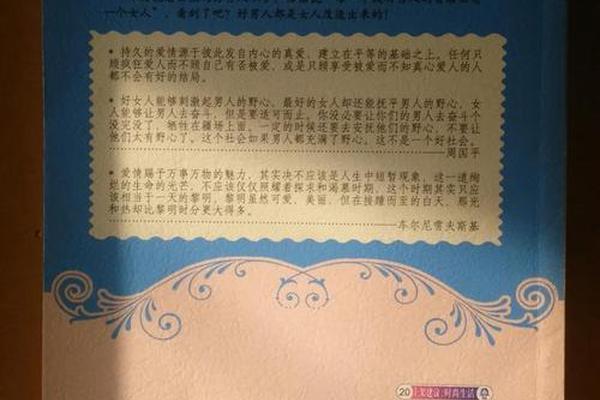 一个女人”，看到了吧？好男人都是女人改造出来的！
·持久的爱情源于彼此发自内心的真爱，建立在平等的基础之上。任何只
顾疯狂爱人而不顾自己有否被爱，或是只顾享受被爱而不知真心爱人的人
都不会有好的结局。
·好女人能够刺激起男人的野心，最好的女人却还能抚平男人的野心。女
人能够让男人去奋斗，但是要适可而止。你没必要让你们的男人去奋斗个
没完没了，牺牲在疆场上面。一定的时候还要去安抚他们的野心，不要让
他们太有野心了。这个社会如果男人都充满了野心。这不是一个好社会。
——周国平
·爱情赐予万事万物的魅力，其实决不应该是人生中短暂现象，这一道绚
烂的生命的光芒，不应该仅仅照耀着探求和渴慕时期，这个时期其实只应
该相当于一天的黎明，黎明虽然可爱、美丽，但在接踵而至的白天，那光
和热却比黎明时分更大得多。
——车尔尼雪夫斯基
上架建议：时尚生活